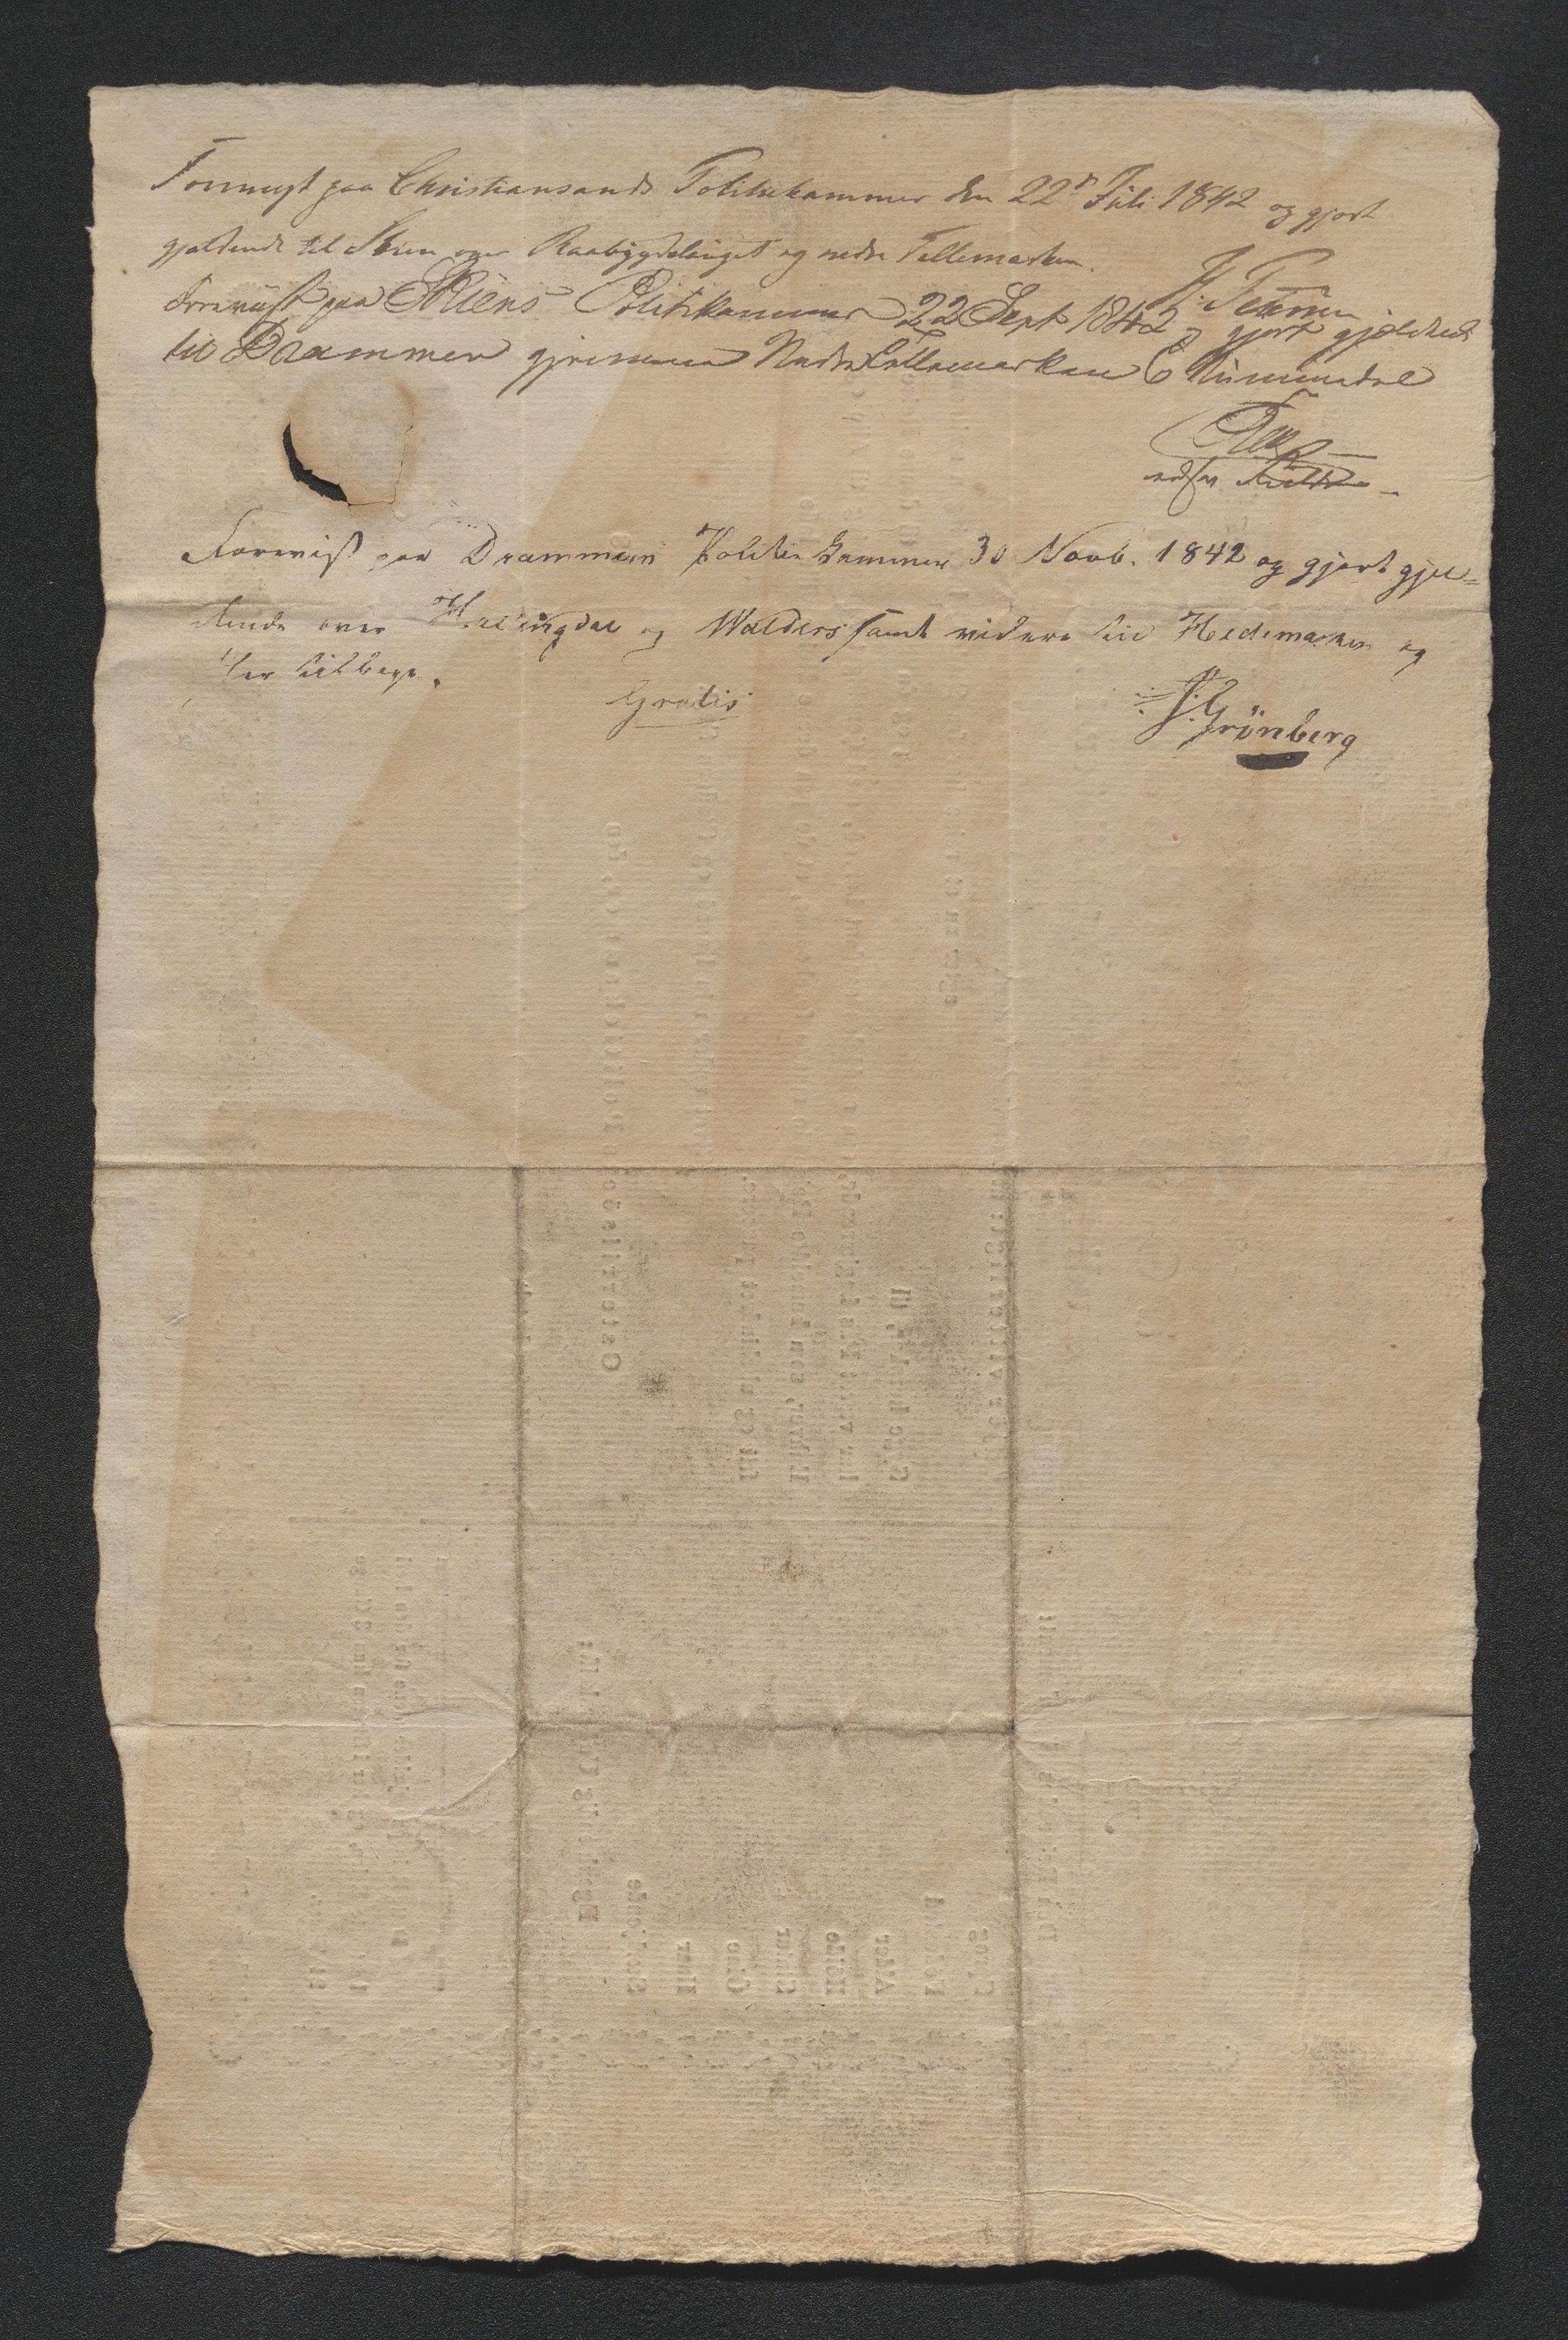 Foreviist paa Christiansands Politiekammer den 22de Juli 1842 og gjort
gjældende til Skien over Raabygdelauget og nedre Tellemarken.
Foreviist paa Skiens Politikammer 22 Sept 1842 og gjort gjeldende
til Drammen gjennem Nedre Tellemarken & Nummedal
Foreviist paa Drammens Politie Kammer 30 Novb. 1842 og gjort gjel-
dende over Hallingdal og Walders samt videre til Hedemarken og
her tilbage.
Gratis
J. Grönberg